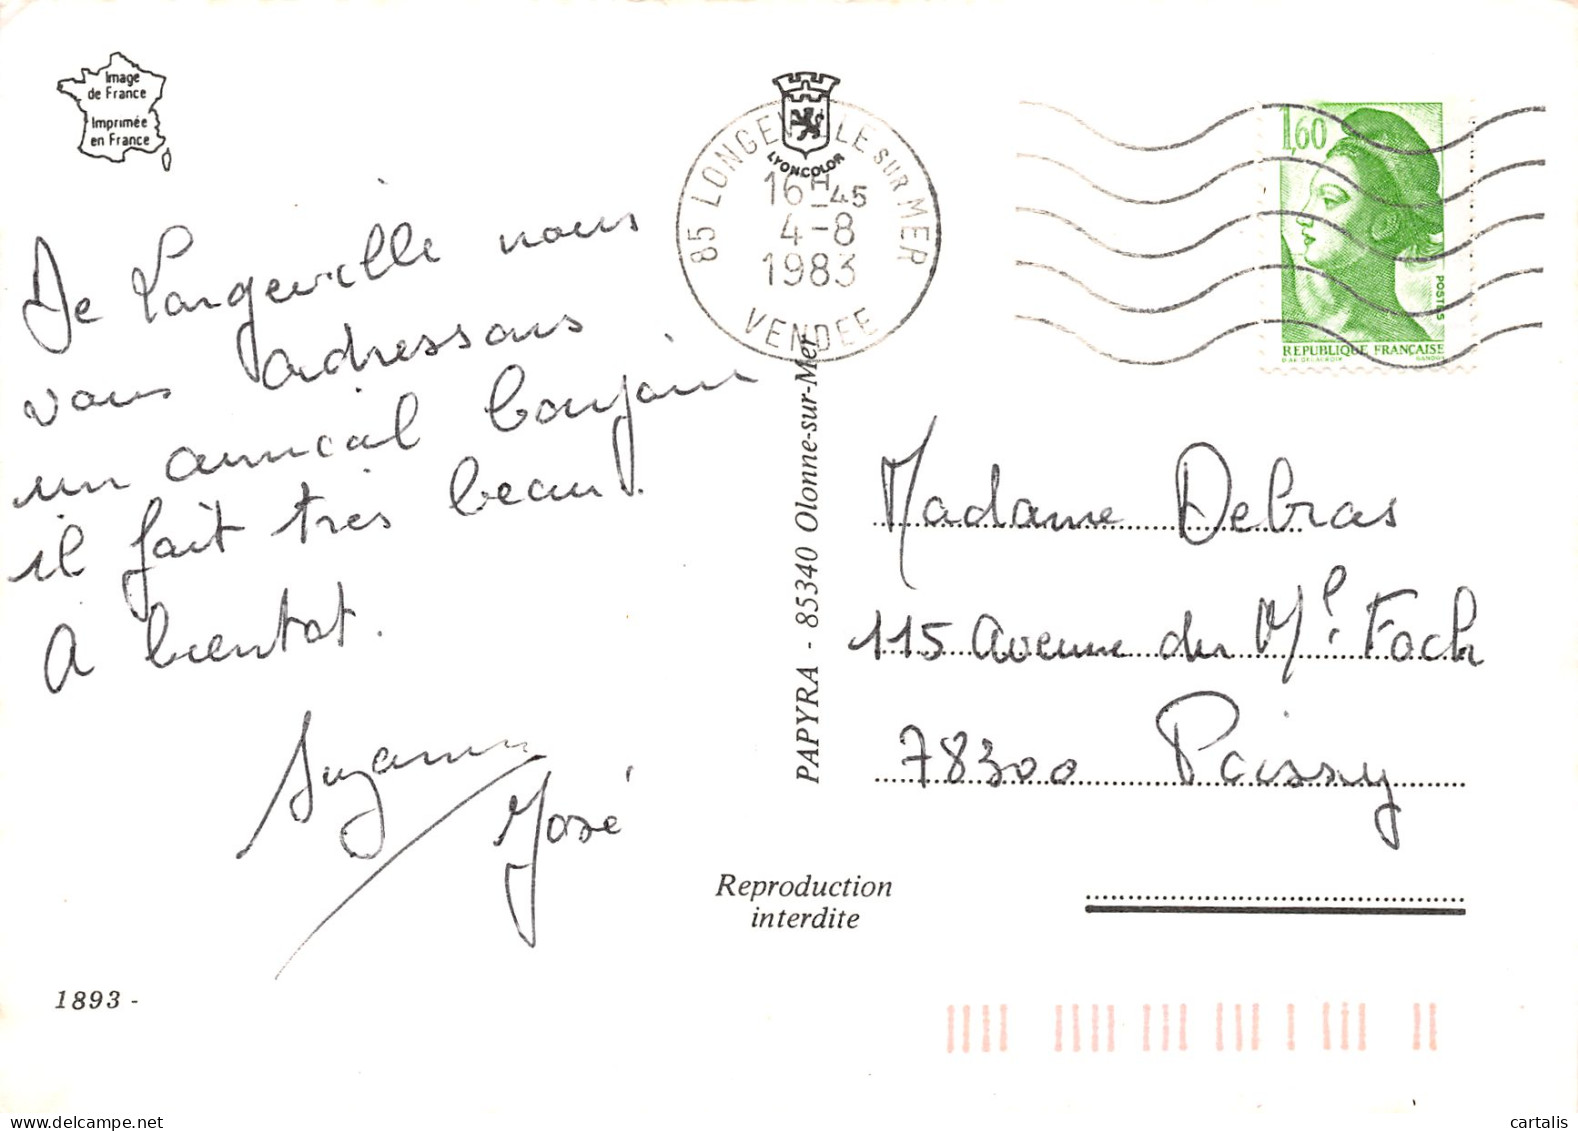 Image
de France
Imprimée
en France
LYONCOLOR
85 LONGEVILLE SUR MER
16H-45
4-8
1983
VENDEE
1,60
POSTES
REPUBLIQUE FRANÇAISE
D'AP. DELACROIX GANDON
De Longeville nous
vous adressons
un amical bonjour
il fait très beau.
A bientot.
Suzanne
José
PAPYRA - 85340 Olonne-sur-Mer
Madame Debras
115 Avenue du Ml. Foch
78300 Poissy
Reproduction
interdite
1893 -
cartalis